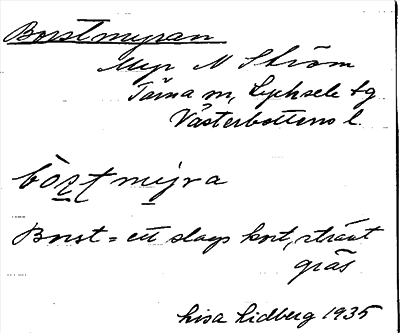 Borstmyran
Myr N Ström
Tärna sn, Lycksele lg
Västerbottens l.
bòʂʈmyra
Borst = ett slags kort, strävt
gräs
Lisa Lidberg 1935